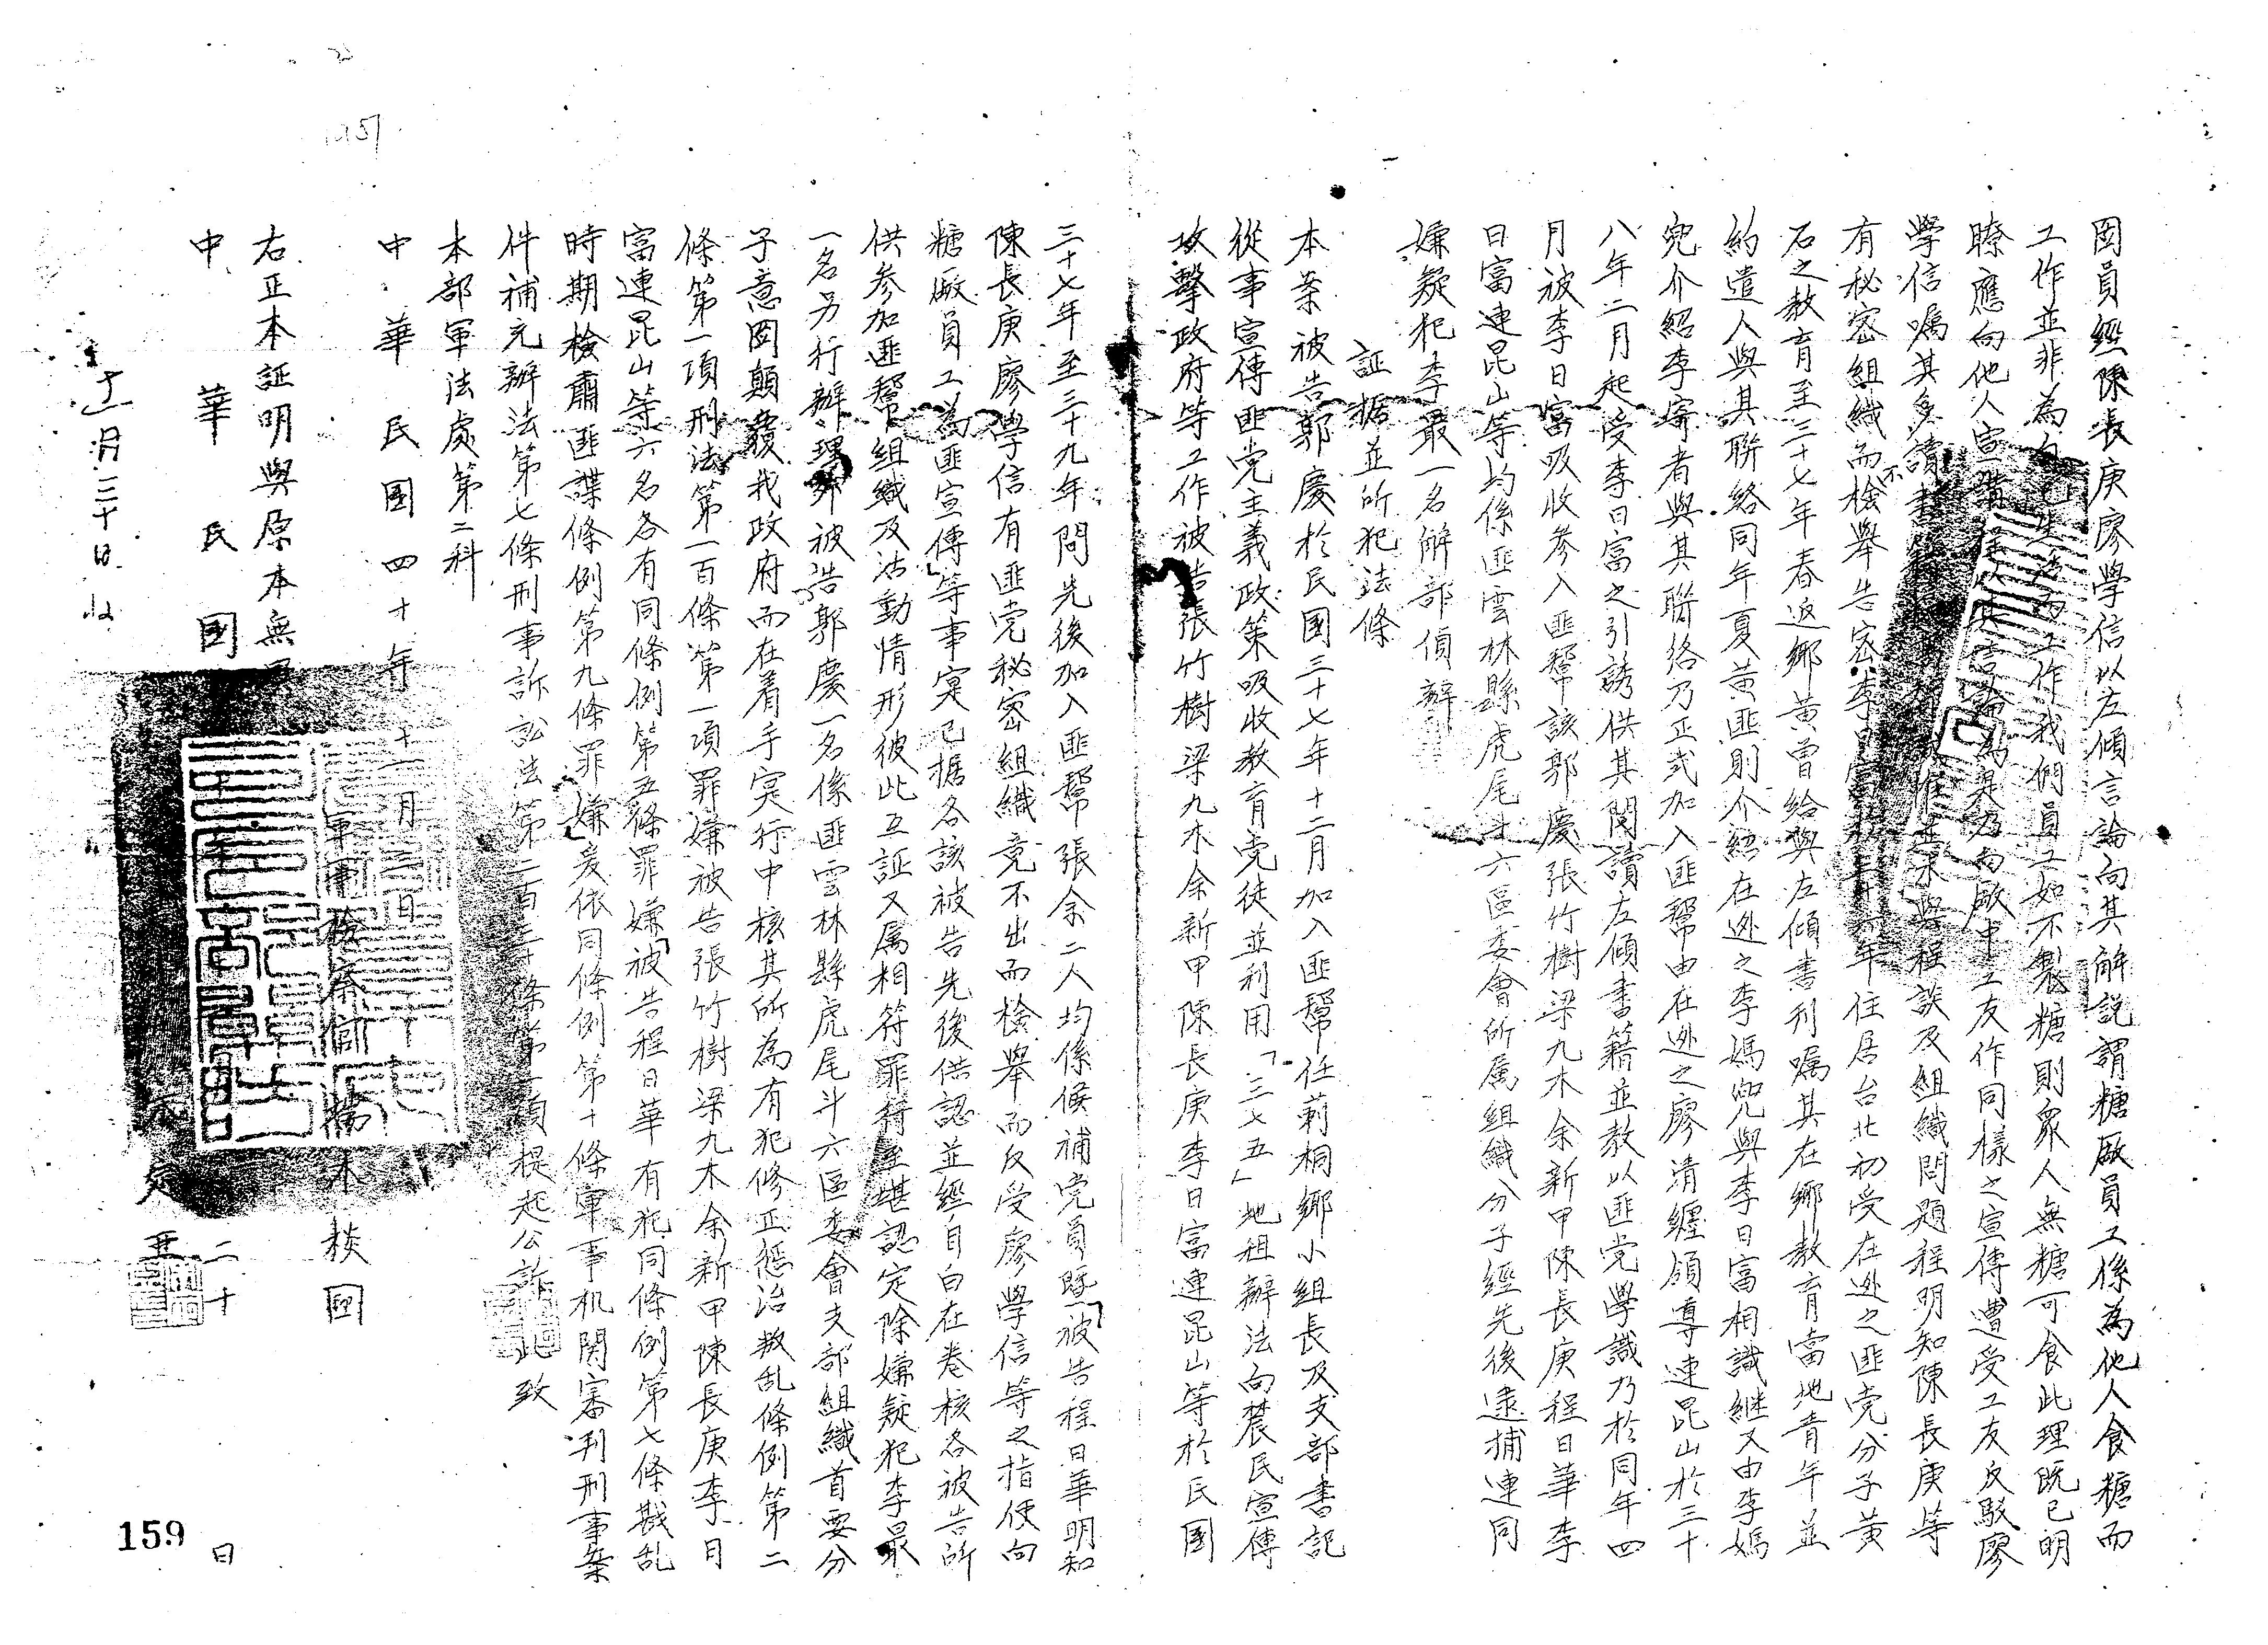 囡員經陳長庚廖學信以左傾言論向其解説謂糖廠員工係為他人食糖而
工作並非為自己生活而工作我們員工如不製糖則衆人無糖可食此理既已明
瞭應向他人宣講程以其言論為是乃向廠中工友作同樣之宣傳遭受工友反駁廖
學信囑其多讀書籍並與程談及組織問題程明知陳長庚等
有秘密組織而不檢舉告密李日富於年住居台北初受在逃之匪党分子黄
石之教育至三十七年春返鄉黄曾給與左傾書刊囑其在鄉教育當地青年並
約遣人與其聯絡同年夏黄匪則介紹在逃之李媽兜與李日富相識継又由李媽
兜介紹李寄者與其聯絡乃正式加入匪幫由在逃之廖清纏領導連昆山於三十
八年二月起受李日富之引誘供其閱讀左傾書籍並教以匪党學識乃於同年四
月被李日富吸收參入匪幫該郭慶張竹樹梁九木余新甲陳長庚程日華李
日富連昆山等均係匪雲林縣虎尾斗六區委會所属組織分子經先後逮捕連同
嫌疑犯李最一名解部偵辦
証據並所犯法條
本案被告郭慶於民國三十七年十二月加入匪幫任莿桐鄉小組長及支部書記
從事宣傳匪党主義政策吸收教育党徒並利用「三七五」地租辦法向農民宣傳
攻擊政府等工作被告張竹樹梁九木余新甲陳長庚李日富連昆山等於民國
三十七年至三十九年間先後加入匪幫張余二人均係候補党員暨被告程日華明知
陳長庚廖學信有匪党秘密組織竟不出而檢舉而反受廖學信等之指使向
糖廠員工為匪宣傳等事寔已據各該被告先後供認並經自白在卷核各被告所
供參加匪幫組織及活動情形彼此互証又属相符罪犯行堪認定除嫌疑犯李最
一名另行辦理外被告郭慶一名係匪雲林縣虎尾斗六區委會支部組織首要分
子意圖顛覆我政府而在着手寔行中核其所為有犯修正懲治叛乱條例第二
條第一項刑法第一百條第一項罪嫌被告張竹樹梁九木余新甲陳長庚李日
富連昆山等六名各有同條例第五條罪嫌被告程日華有犯同條例第七條戡乱
時期檢肅匪諜條例第九條罪嫌爰依同條例第十條軍事机関審判刑事案
件補充辦法第七條刑事訴訟法第二百三十條第一項提起公訴此致
本部軍法處第二科
中華民國四十年十一月三日
軍事檢察官楊木棪國
右正本証明與原本無異
中華民國四十年二十日
十一月二十日收
159